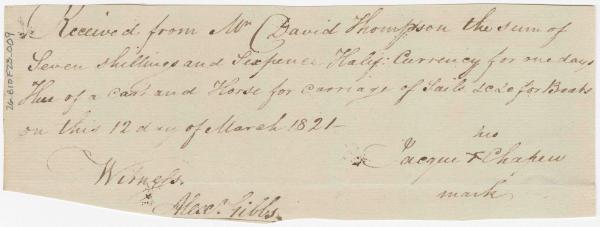 Received from Mr David Thompson the sum of
Seven shillings and Sixpence Halif: Currency for one days
Hire of a cart and Horse for carriage of Sails &c &c for Boats
on this 12 day of March 1821-
his
Jacque X Chapeu
mark
Witness.
Alexr. Gibbs.